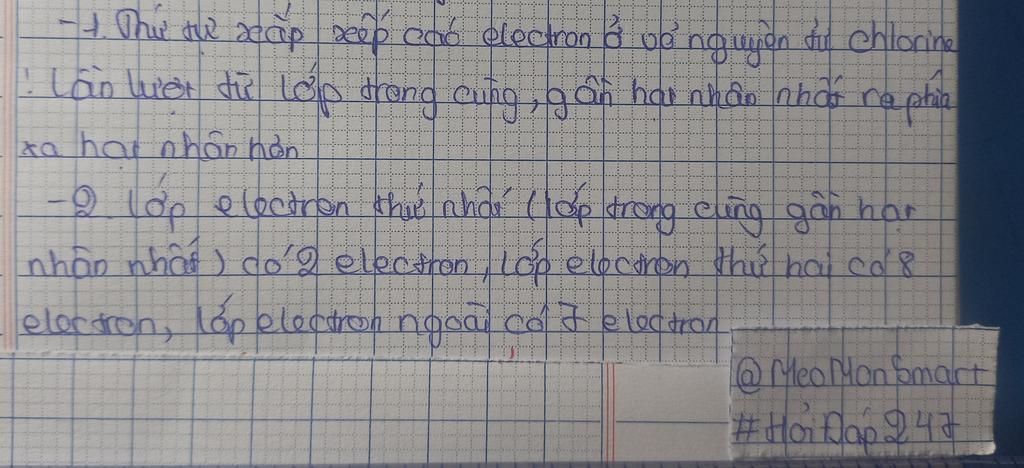 -1. Thứ tự xắp xếp các electron ở vỏ nguyên tử chlorine
: Lần lượt từ lớp trong cùng, gần hạt nhân nhất ra phía
xa hạt nhân hơn
-2 lớp electron thứ nhất (lớp trong cùng gần hạt
nhân nhất) có 2 electron, lớp electron thứ hai có 8
electron, lớp electron ngoài có 7 electron
@MeoMonSmart
#HỏiĐáp247